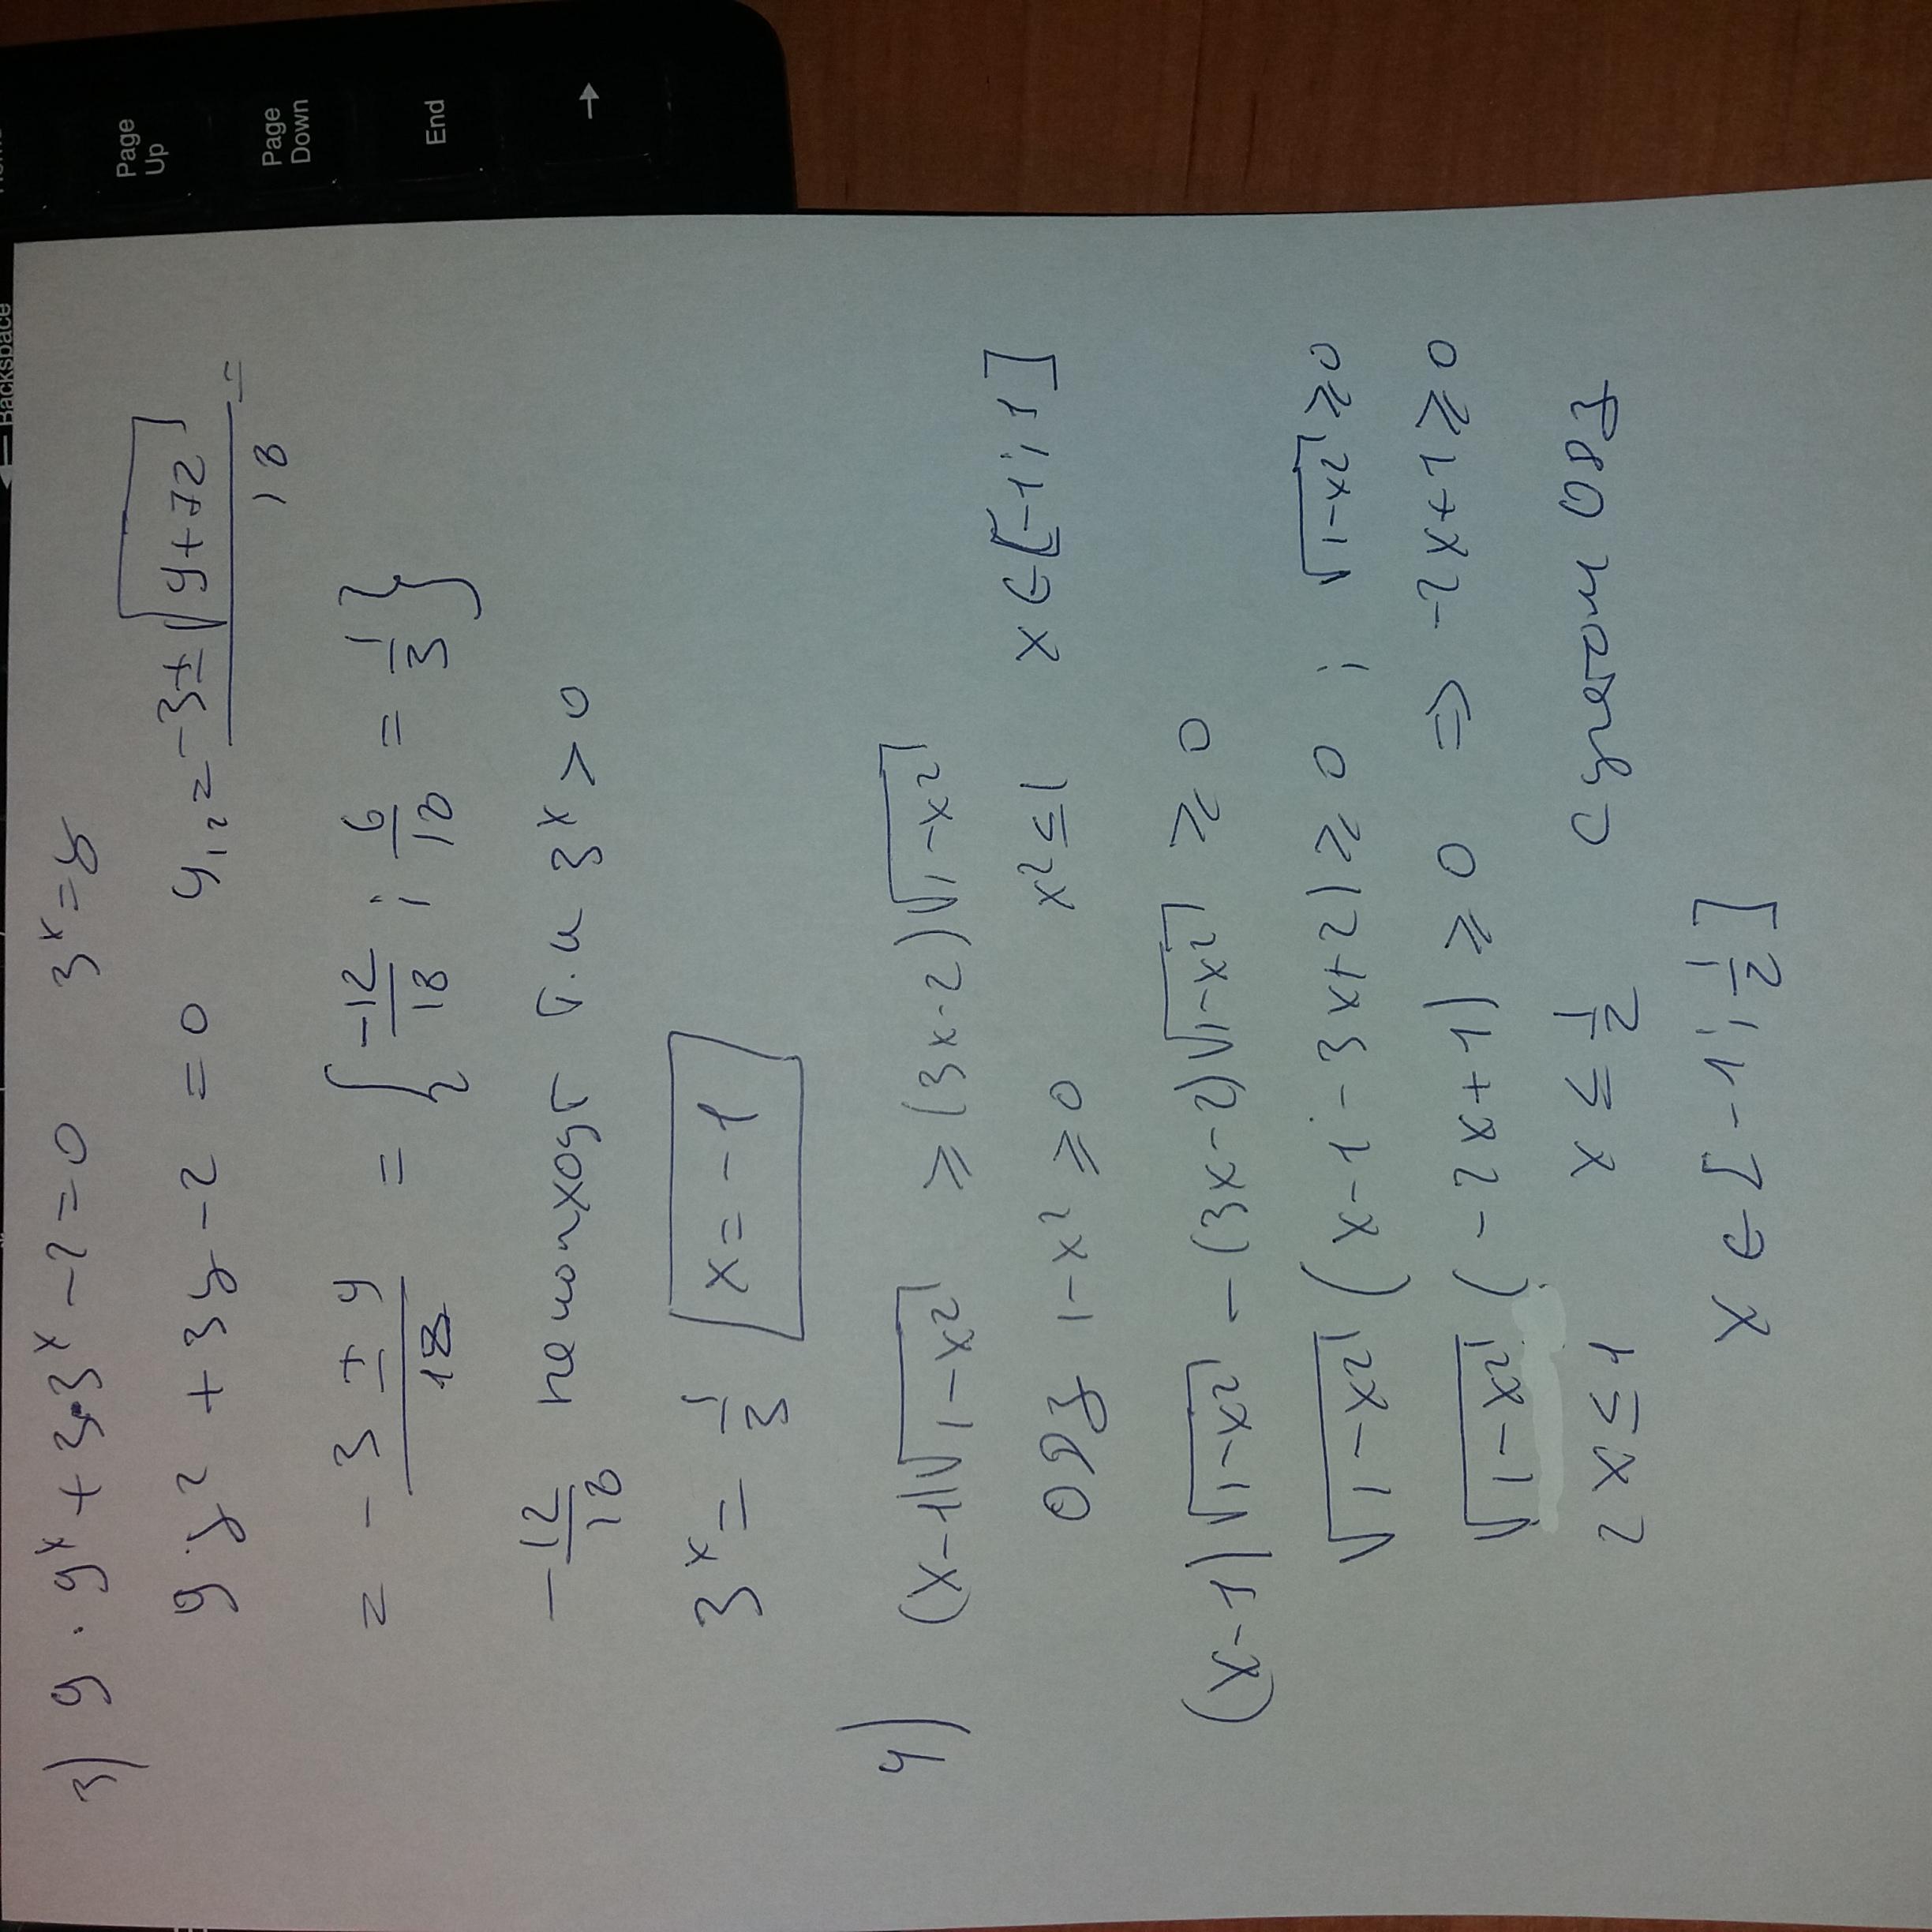 Backspace
Page Up
Page Down
End
→
3) 9 · 9ˣ + 3·3ˣ − 2 = 0   3ˣ = y
9y² + 3y − 2 = 0   y₁₂ = (−3 ± √(9+72))/18 =
= (−3 ± 9)/18 = {−12/18 ; 6/18 = 1/3}
−12/18 не подходит т.и 3ˣ > 0
3ˣ = 1/3   x = −1
4) (x−1)√(1−x²) ≥ (3x−2)√(1−x²)
ОДЗ 1−x² ≥ 0   x² ≤ 1   x ∈ [−1; 1]
(x−1)√(1−x²) − (3x−2)√(1−x²) ≥ 0
√(1−x²) (x−1−3x+2) ≥ 0 ; √(1−x²) ≥ 0
√(1−x²) (−2x+1) ≥ 0 ⇒ −2x+1 ≥ 0
2x ≤ 1   x ≤ 1/2   с учетом ОДЗ
x ∈ [−1; 1/2]